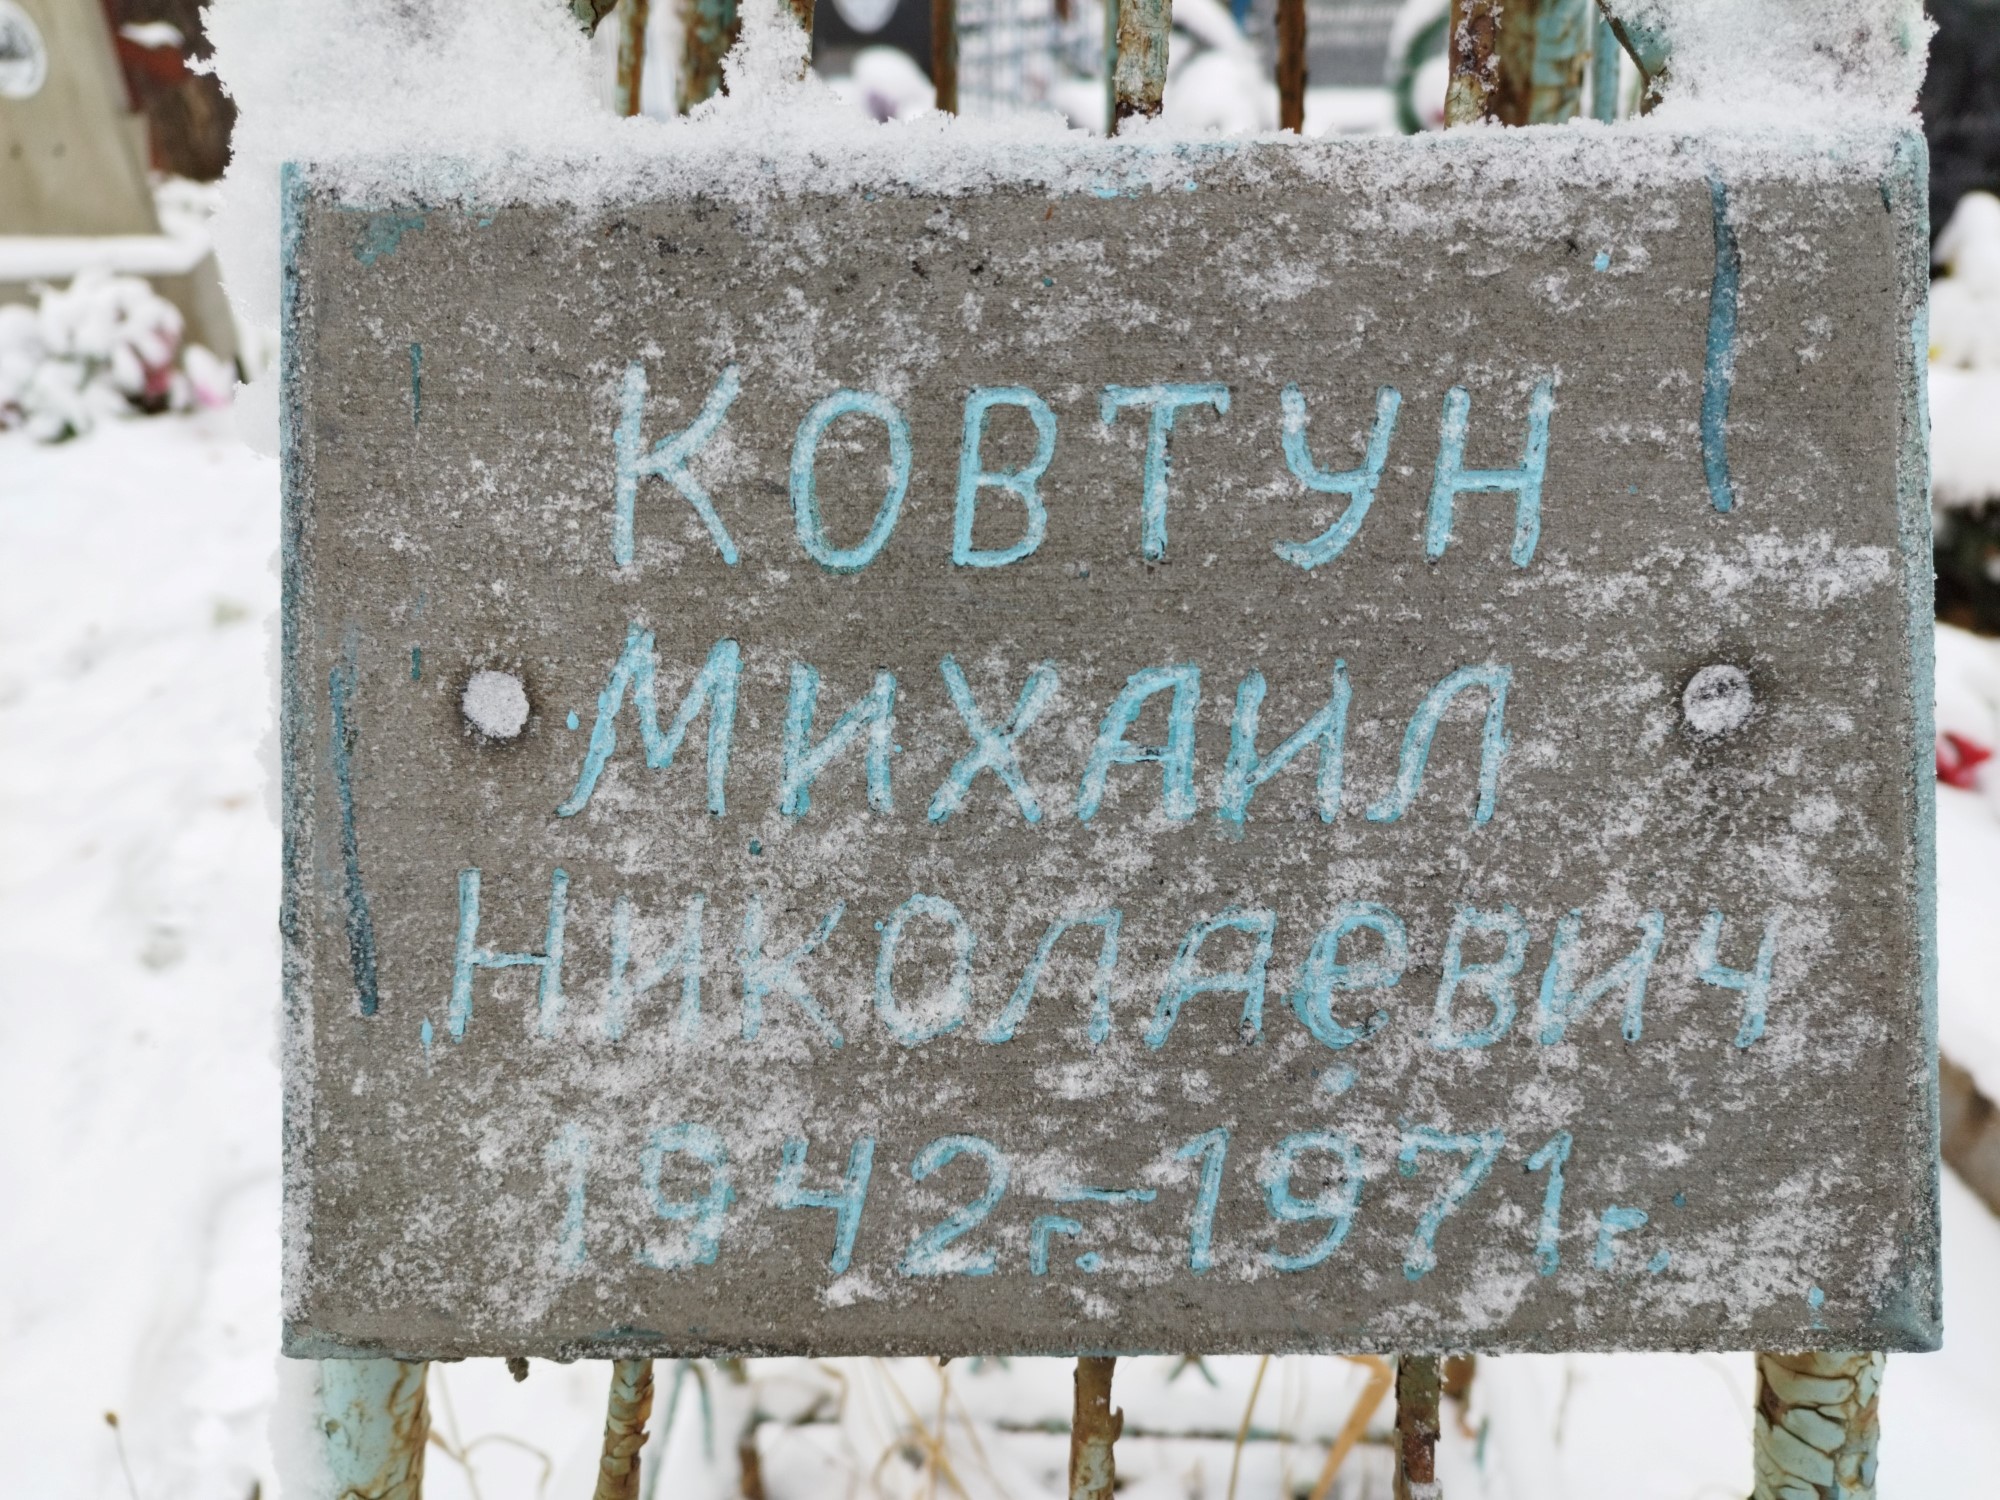 КОВТУН
МИХАИЛ
НИКОЛАЕВИЧ
1942г.-1971г.